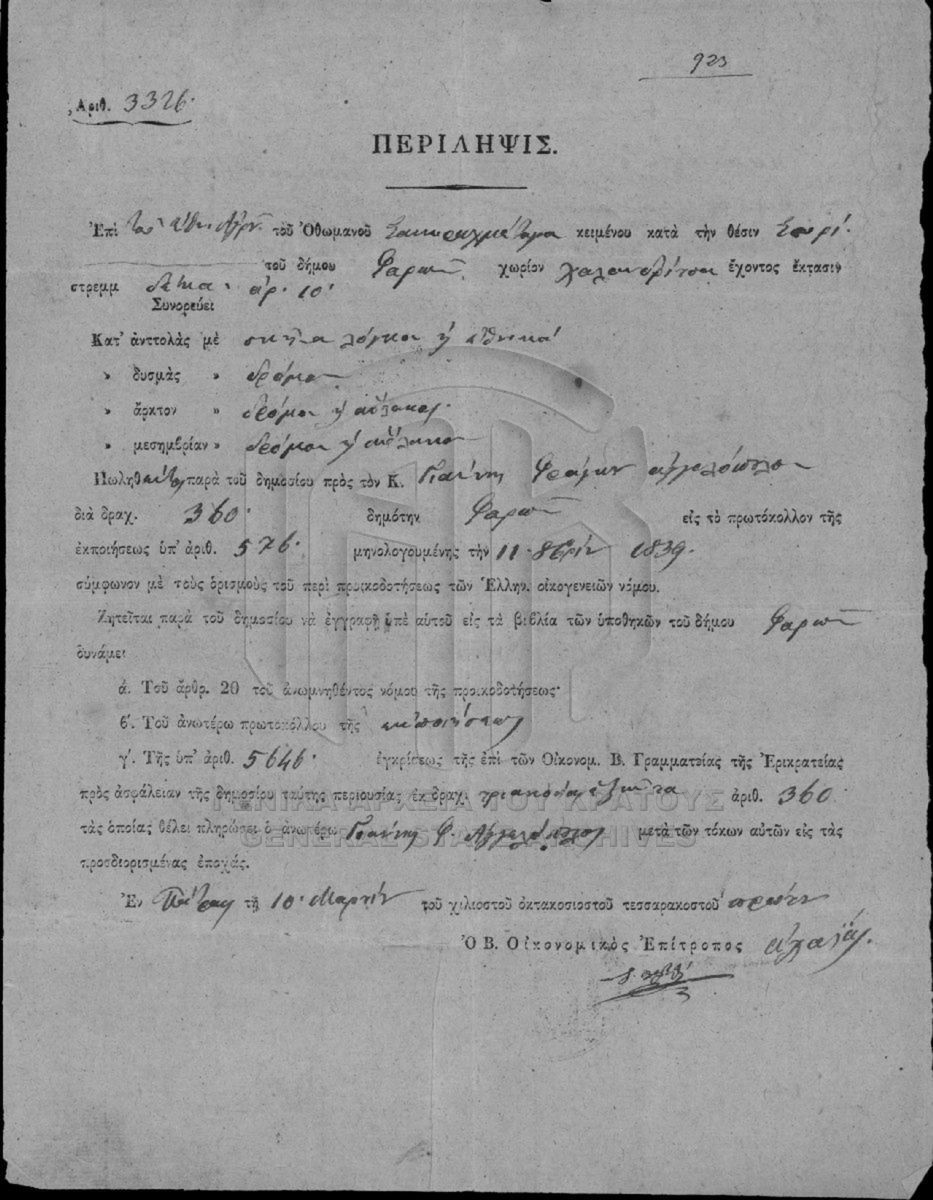 923
Ἀριθ. 3326.
ΠΕΡΙΛΗΨΙΣ.
Ἐπὶ τοῦ τοῦ Ὀθωμανοῦ κειμένου κατὰ τὴν θέσιν
τοῦ δήμου Φαρῶν χωρίον ἔχοντος ἔκτασιν
στρεμμ δέκα ἀρ. 10.
Συνορεύει
Κατ' ἀνττολὰς μὲ λόγκον ἢ ἐθνικά
» δυσμὰς » δρόμον
» ἄρκτον » δρόμον ἢ αὔλακας.
» μεσημβρίαν » δρόμον ἢ αὔλακα
Πωληθέντος παρὰ τοῦ δημοσίου πρὸς τὸν Κ. Γιαννην Φράγκον Αγγελόπουλον
διὰ δραχ. 360. δημότην Φαρῶν εἰς τὸ πρωτόκολλον τῆς
ἐκποιήσεως ὑπ' ἀριθ. 576. μηνολογουμένης τὴν 11 8βρίου 1839.
σύμφωνον μὲ τοὺς ὁρισμοὺς τοῦ περὶ προικοδοτήσεως τῶν Ἑλλην. οἰκογενειῶν νόμου.
Ζητεῖται παρὰ τοῦ δημοσίου νὰ ἐγγραφῇ ὑπὲ αὐτοῦ εἰς τὰ βιβλία τῶν ὑποθηκῶν τοῦ δήμου Φαρῶν
δυνάμει
ά. Τοῦ ἄρθρ. 20 τοῦ ἀνωμνηθέντος νόμου τῆς προικοδοτήσεως·
β'. Τοῦ ἀνωτέρω πρωτοκόλλου τῆς ἐκποιήσεως
γ'. Τῆς ὑπ' ἀριθ. 5646. ἐγκρίσεως τῆς ἐπὶ τῶν Οἰκονομ. Β. Γραμματείας τῆς Ἐπικρατείας
πρὸς ἀσφάλειαν τῆς δημοσίου ταύτης περιουσίας ἐκ δραχ. τριακόσιαι ἑξήκοντα ἀριθ. 360
τὰς ὁποίας θέλει πληρώσει ὁ ἀνωτέρω Γιαννης Φ. Αγγελόπουλος μετὰ τῶν τόκων αὐτῶν εἰς τὰς
προσδιορισμένας ἐποχάς.
Ἐν Πάτραις τῇ 10. Μαρτίου τοῦ χιλιοστοῦ ὀκτακοσιοστοῦ τεσσαρακοστοῦ πρώτου
Ὁ Β. Οἰκονομικὸς Ἐπίτροπος Ἀχαΐας.
ΓΕΝΙΚΑ ΑΡΧΕΙΑ ΤΟΥ ΚΡΑΤΟΥΣ
GENERAL STATE ARCHIVES